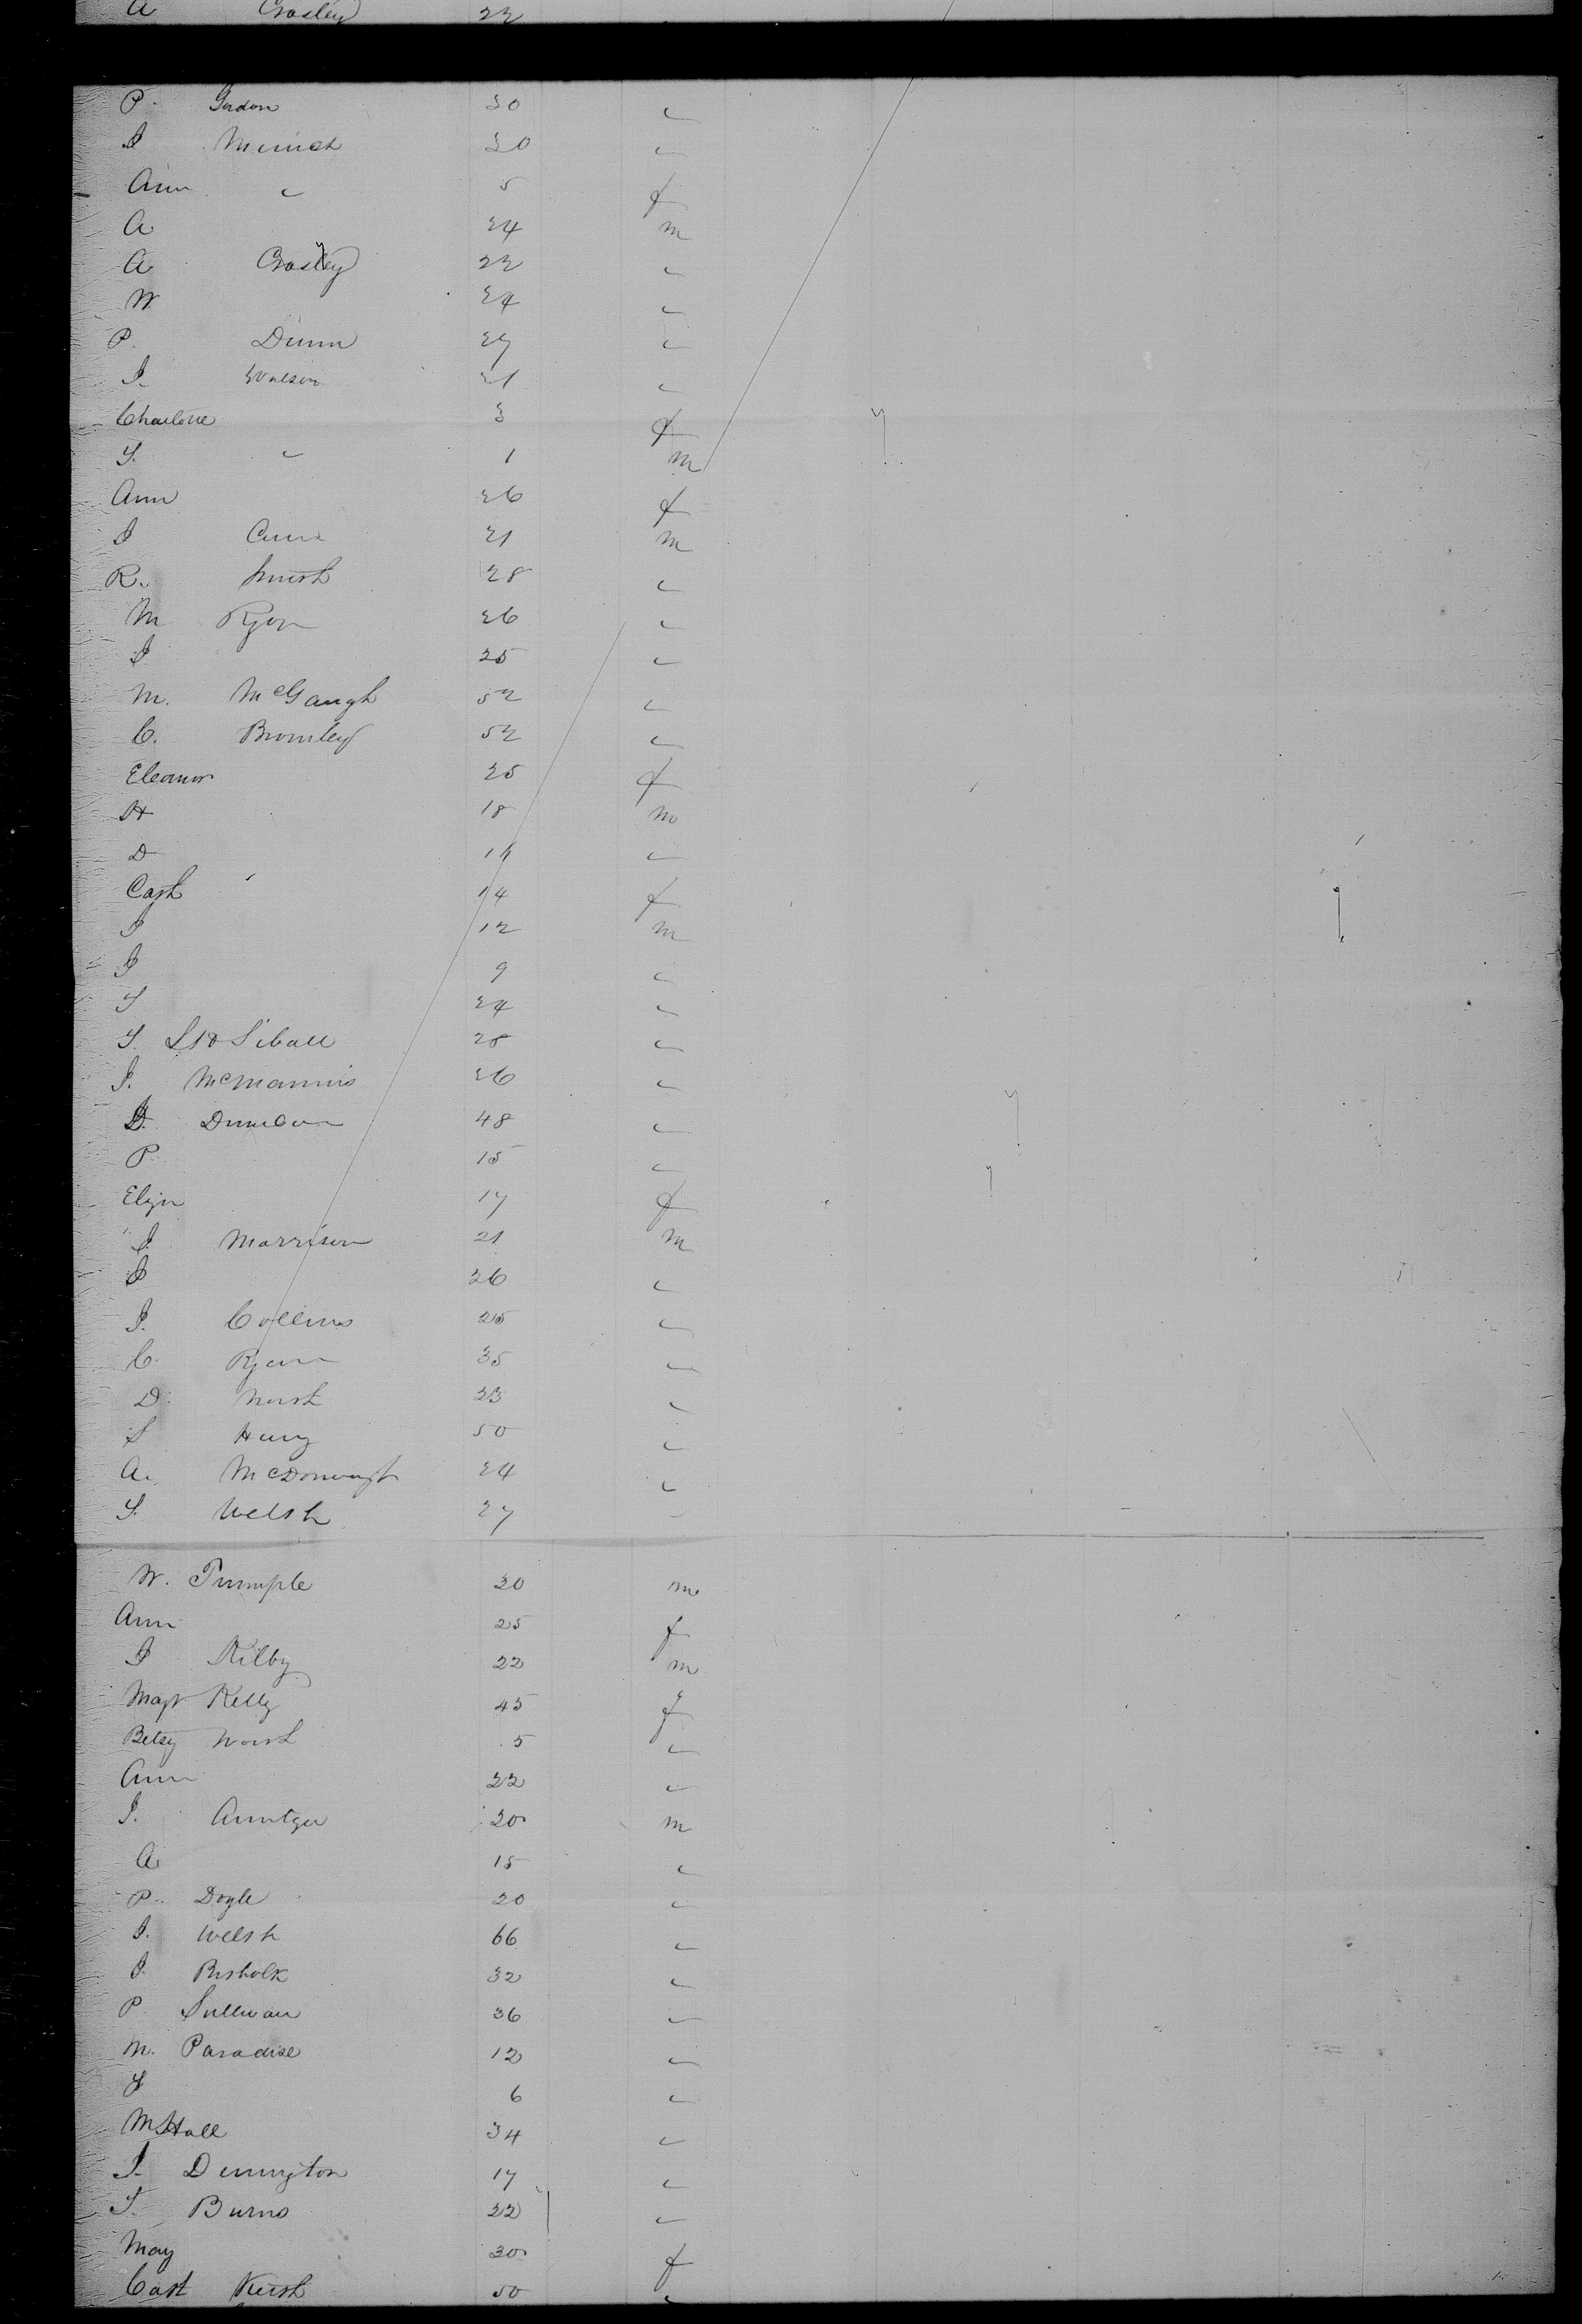 A Crosley 22
P. Gordon 30 "
J Minich 30 "
Ann " 5 f
A 24 m
A Crosley 22 "
W. 24 "
P. Dunn 27 "
J. Wilson 21 "
Charlotte 3 f
T. " 1 m
Ann 26 f
J 21 m
R. 28 "
M Ryon 26 "
J 25 "
M. McGaugh 52 "
C. Bromley 52 "
Eleanor 25 f
H 18 m
D "
Cath 14 f
J 12 m
J 9 "
T 24 "
T. 28 "
J. McMannis 26 "
D. 48 "
P 15 "
Eliza 17 f
J. Morrison 21 m
J 26 "
J. Collins 25 "
C. Ryan 35 "
D. 23 "
S 50 "
A. McDonough 24 "
T. Welsh 27
W. Pumple 20 m
Ann 25 f
J Kilby 22 m
Magt Kelly 45 f
Betsy 5 "
Ann 22 "
J. 20 m
A 15 "
P. Doyle 20 "
J. Welsh 66 "
J. 32 "
P Sullivan 36 "
M. Paradise 12 "
J 6 "
M Hall 34 "
J. Dennington 17 "
T. Burns 22 "
May 30 f
Cath 50 "